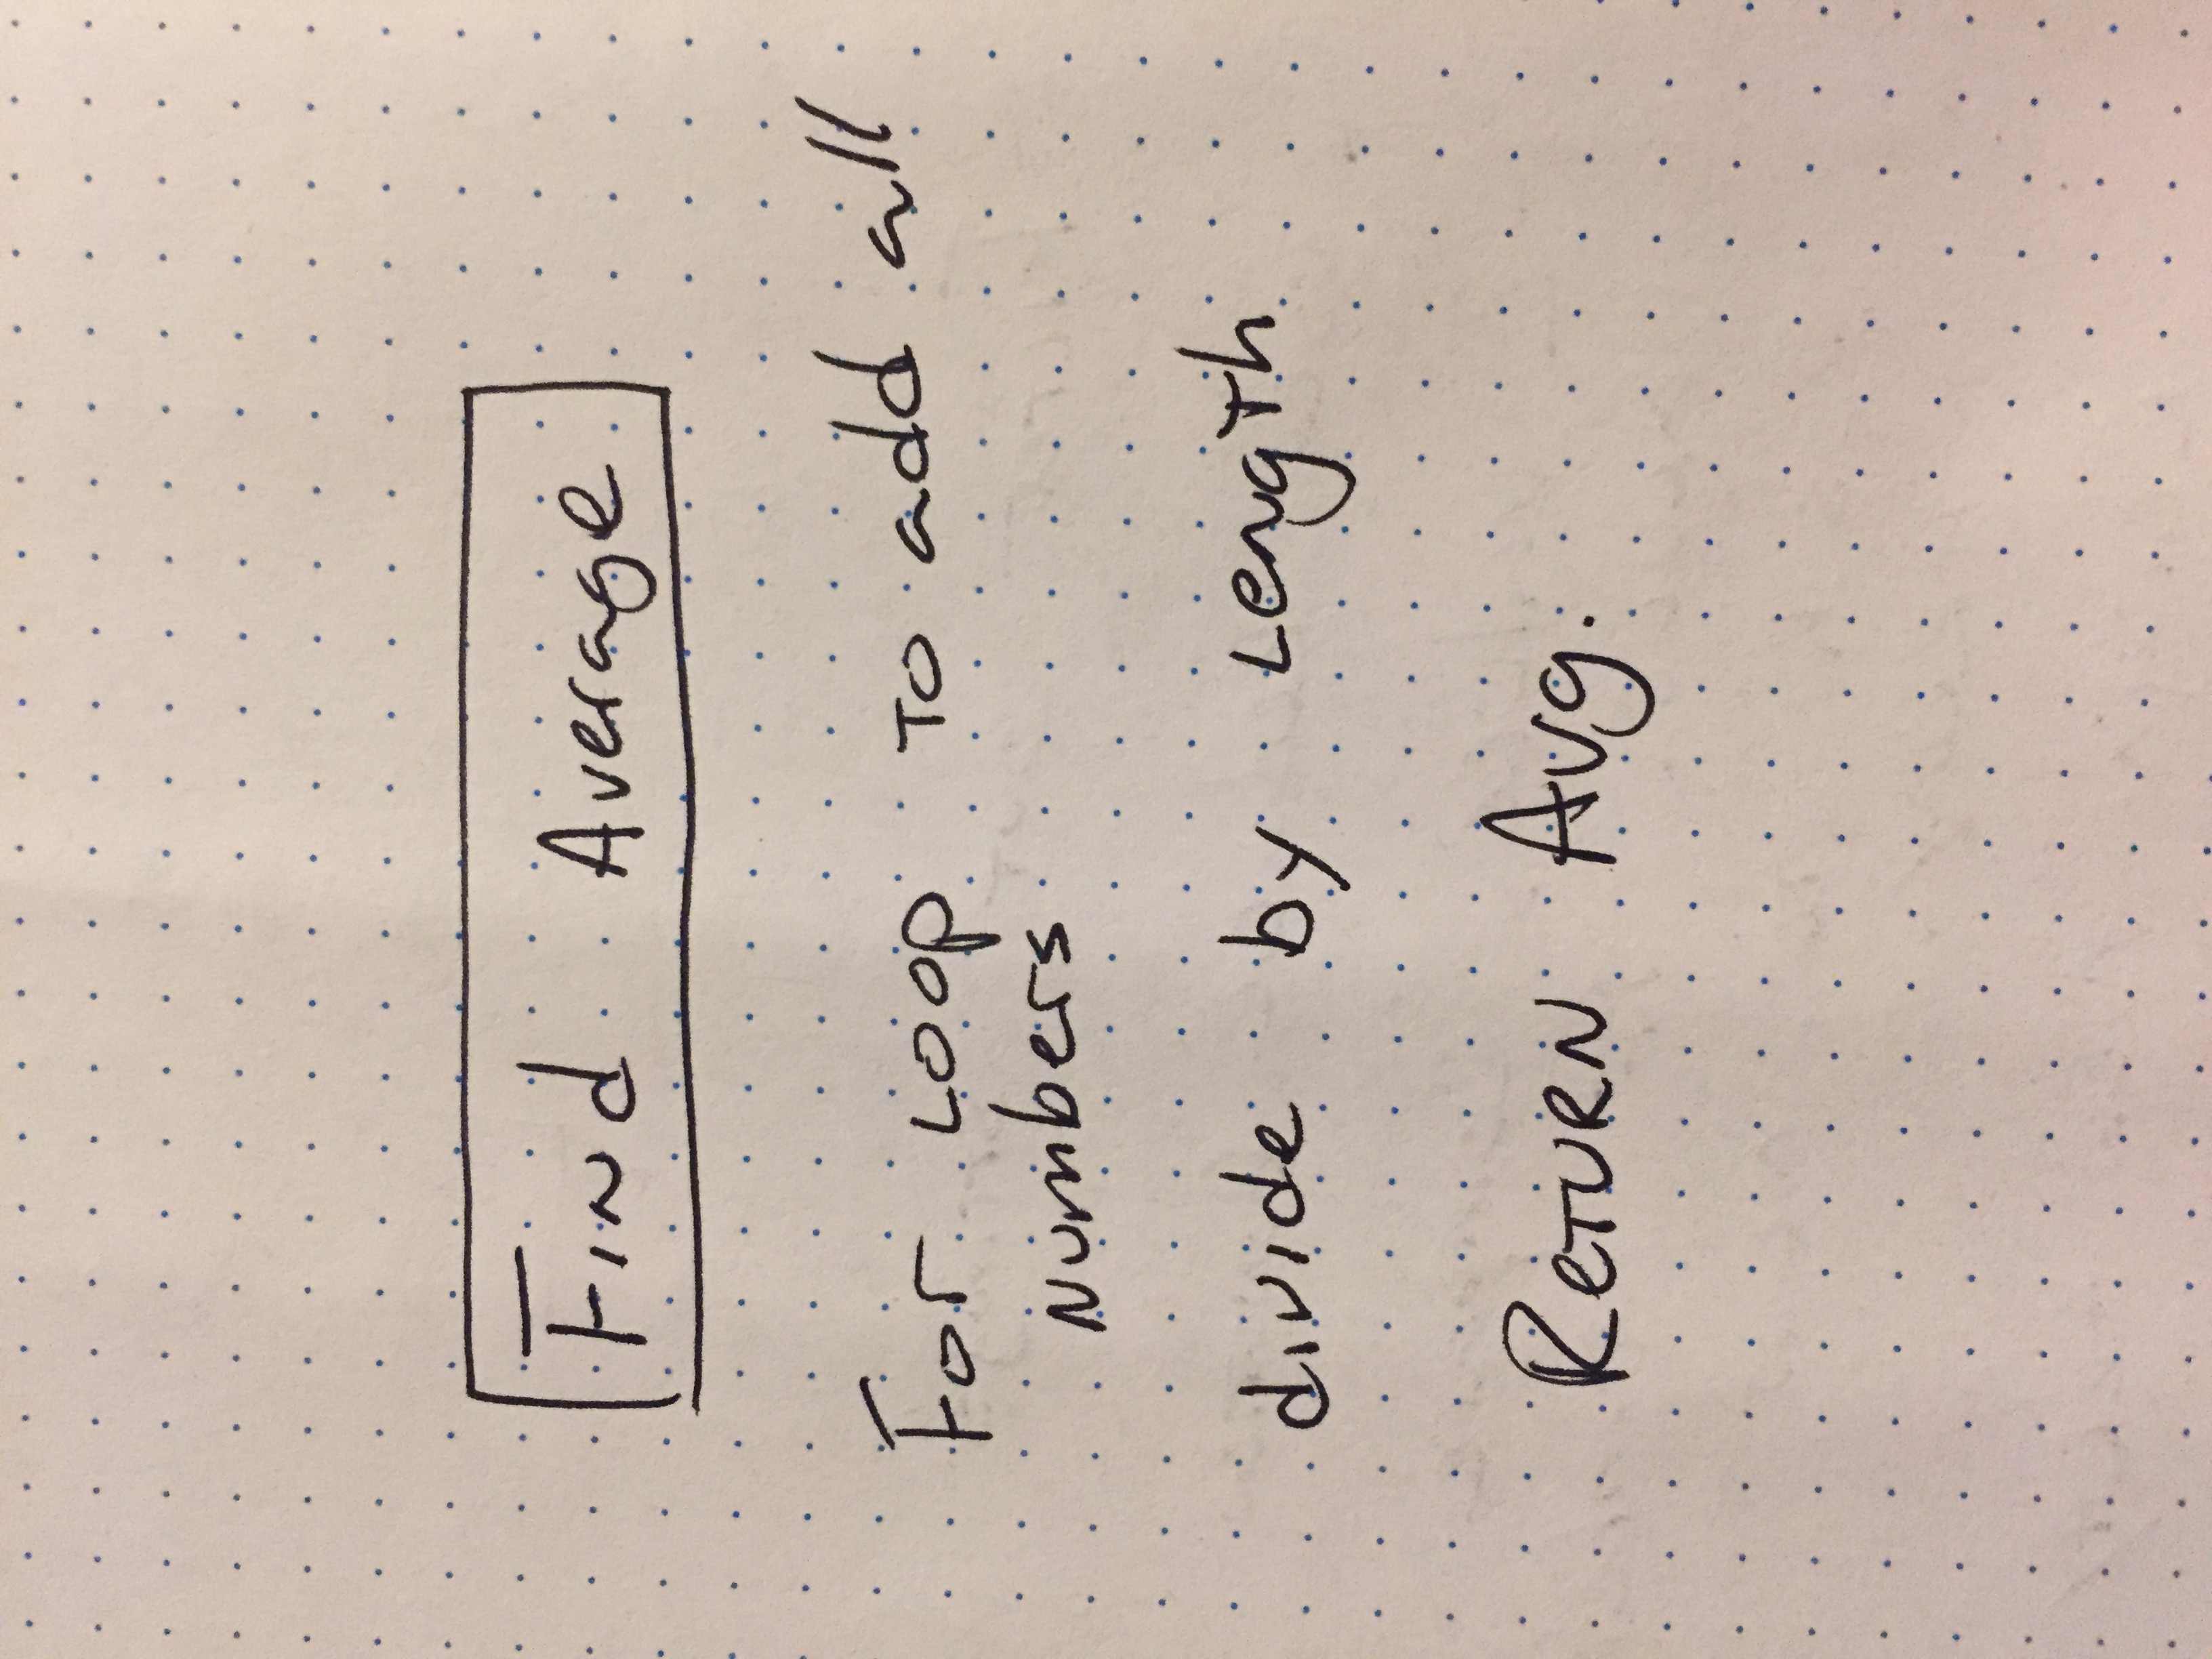 Find Average
For Loop To add all
Numbers
divide by Length
Return Avg.